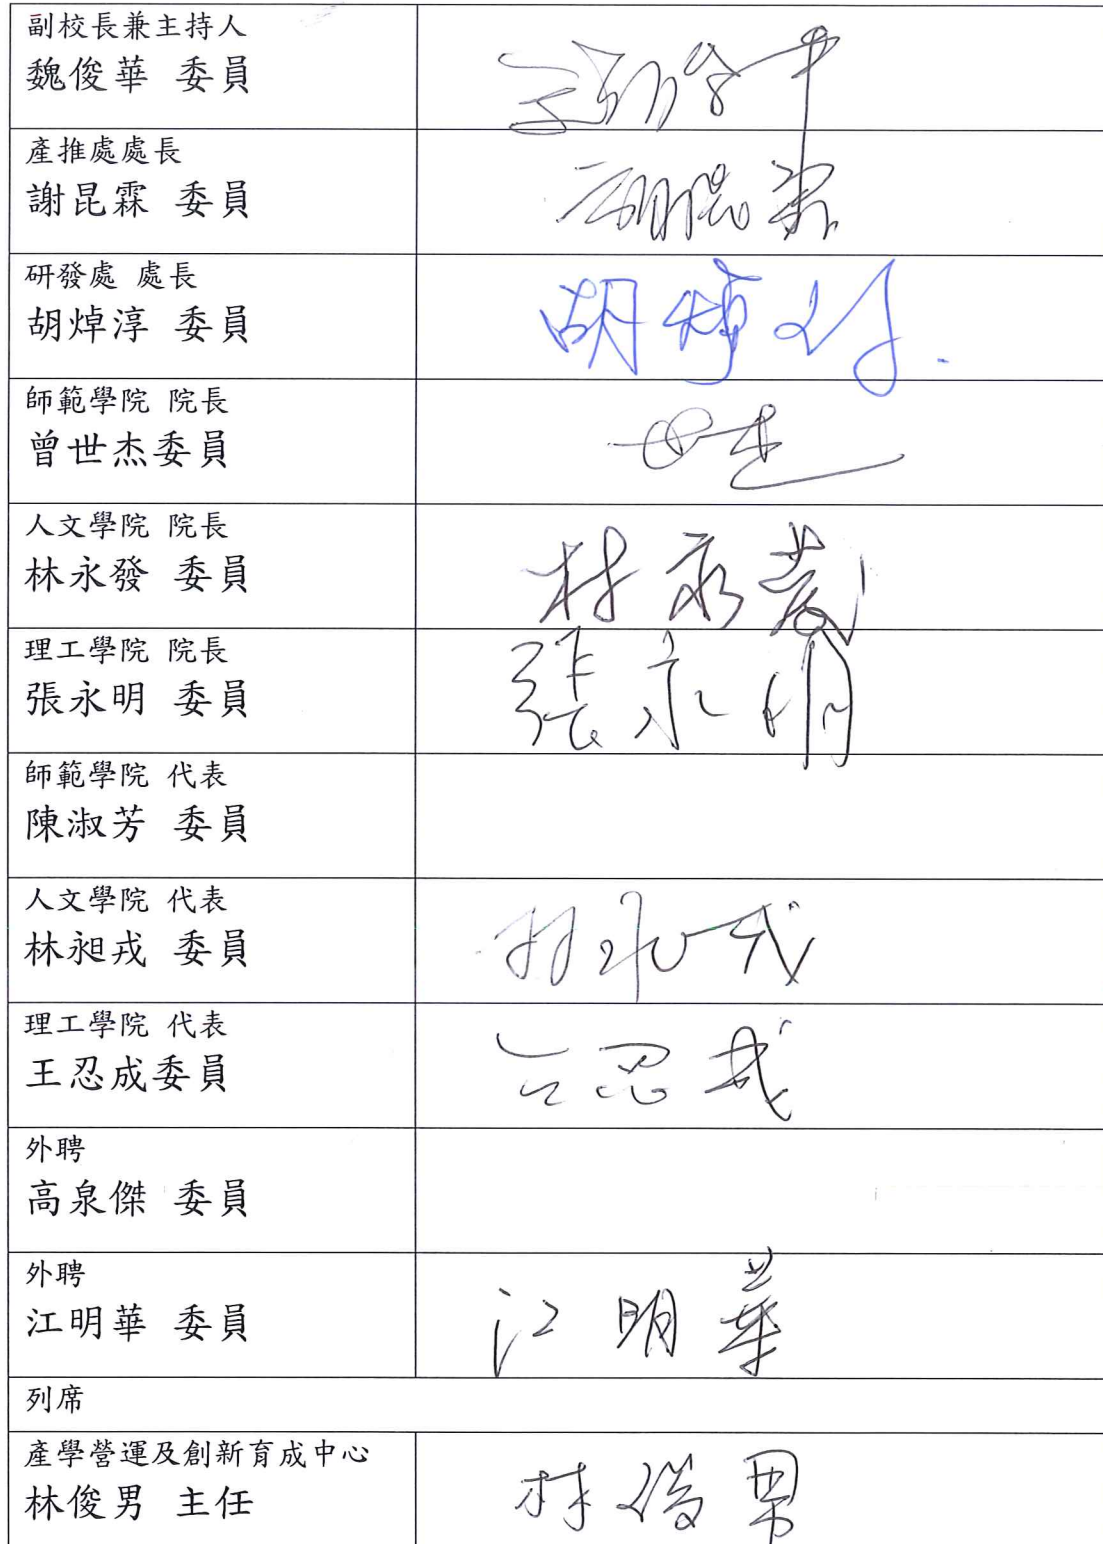 副校長兼主持人
魏俊華 委員
產推處處長
謝昆霖 委員
研發處 處長
胡焯淳 委員
胡焯淳
師範學院 院長
曾世杰委員
人文學院 院長
林永發 委員
林永發
理工學院 院長
張永明 委員
張永明
師範學院 代表
陳淑芳 委員
人文學院 代表
林昶戎 委員
理工學院 代表
王忍成委員
王忍成
外聘
高泉傑 委員
外聘
江明華 委員
江明華
列席
產學營運及創新育成中心
林俊男 主任
林俊男